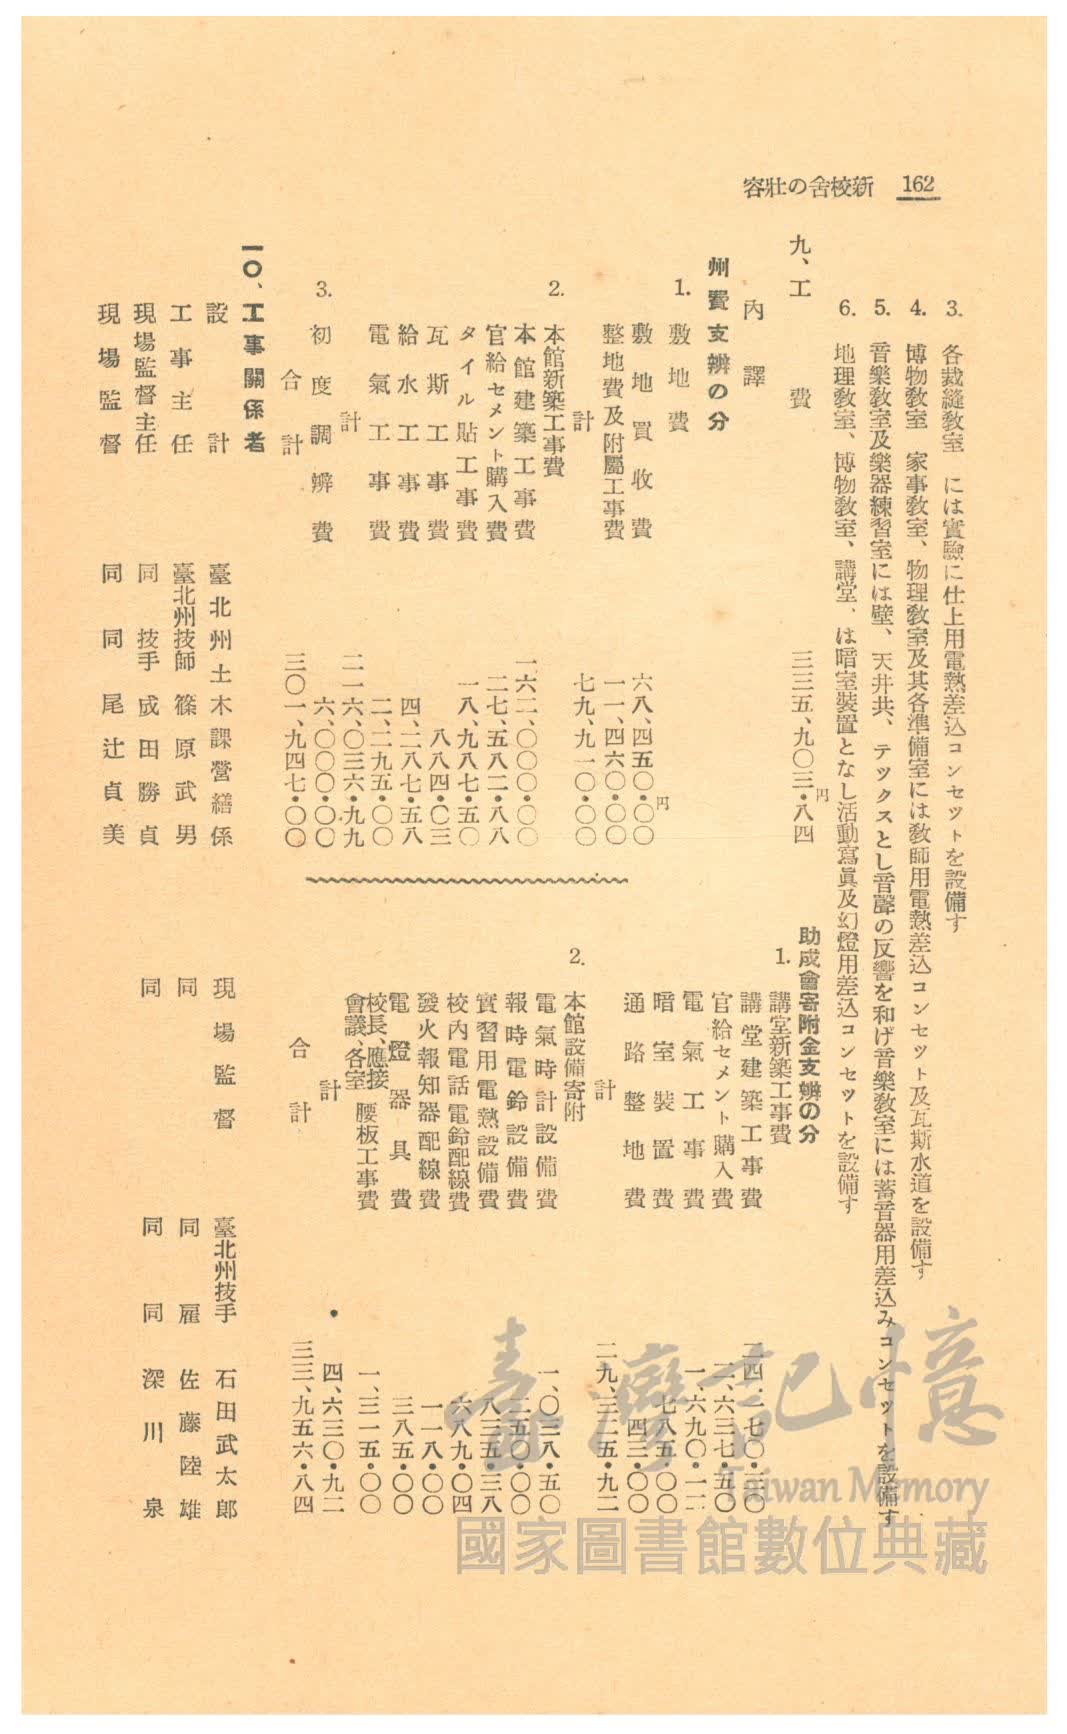 新校舍の壯容 162
3. 各裁縫教室　には實驗に仕上用電熱差込コンセットを設備す
4. 博物教室　家事教室、物理教室及其各準備室には教師用電熱差込コンセット及瓦斯水道を設備す
5. 音樂教室及樂器練習室には壁、天井共、テックスとし音聲の反響を和げ音樂教室には蓄音器用差込みコンセットを設備す
6. 地理教室、博物教室、講堂、は暗室裝置となし活動寫眞及幻燈用差込コンセットを設備す
九、工費　三三五、九〇三・八四円
內譯
州費支辨の分
1. 敷地費
敷地買收費　六八、四五〇・〇〇円
整地費及附屬工事費　一一、四六〇・〇〇
計　七九、九一〇・〇〇
2. 本館新築工事費
本館建築工事費　一六二、〇〇〇・〇〇
官給セメント購入費　二七、五八二・八八
タイル貼工事費　一八、九八七・五〇
瓦斯工事費　八八四・〇三
給水工事費　四、二八七・五八
電氣工事費　二、二九五・〇〇
計　二一六、〇三六・九九
3. 初度調辨費　六、〇〇〇・〇〇
合計　三〇一、九四七・〇〇
助成會寄附金支辨の分
1. 講堂新築工事費
講堂建築工事費　二四、一七〇・三〇
官給セメント購入費　二、六三七・五〇
電氣工事費　一、六九〇・一二
暗室裝置費　七八五・〇〇
通路整地費　四三・〇〇
計　二九、三二五・九二
2. 本館設備寄附
電氣時計設備費　一、〇三八・五〇
報時電鈴設備費　二五〇・〇〇
實習用電熱設備費　八三五・三八
校內電話電鈴配線費　六八九・〇四
發火報知器配線費　一一八・〇〇
電燈器具費　三八五・〇〇
校長、應接會議、各室腰板工事費　一、三一五・〇〇
計　四、六三〇・九二
合計　三三、九五六・八四
一〇、工事關係者
設計　臺北州土木課營繕係
工事主任　臺北州技師　篠原武男
現場監督主任　同　技手　成田勝貞
現場監督　同　同　尾辻貞美
現場監督　臺北州技手　石田武太郎
同　同　雇　佐藤陸雄
同　同　同　深川泉
臺灣記憶
Taiwan Memory
國家圖書館數位典藏